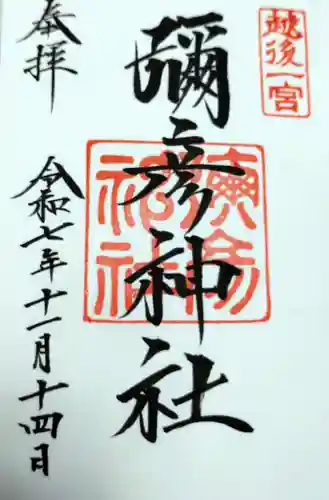 越後一宮
奉拝
彌彦神社
令和七年十一月十四日